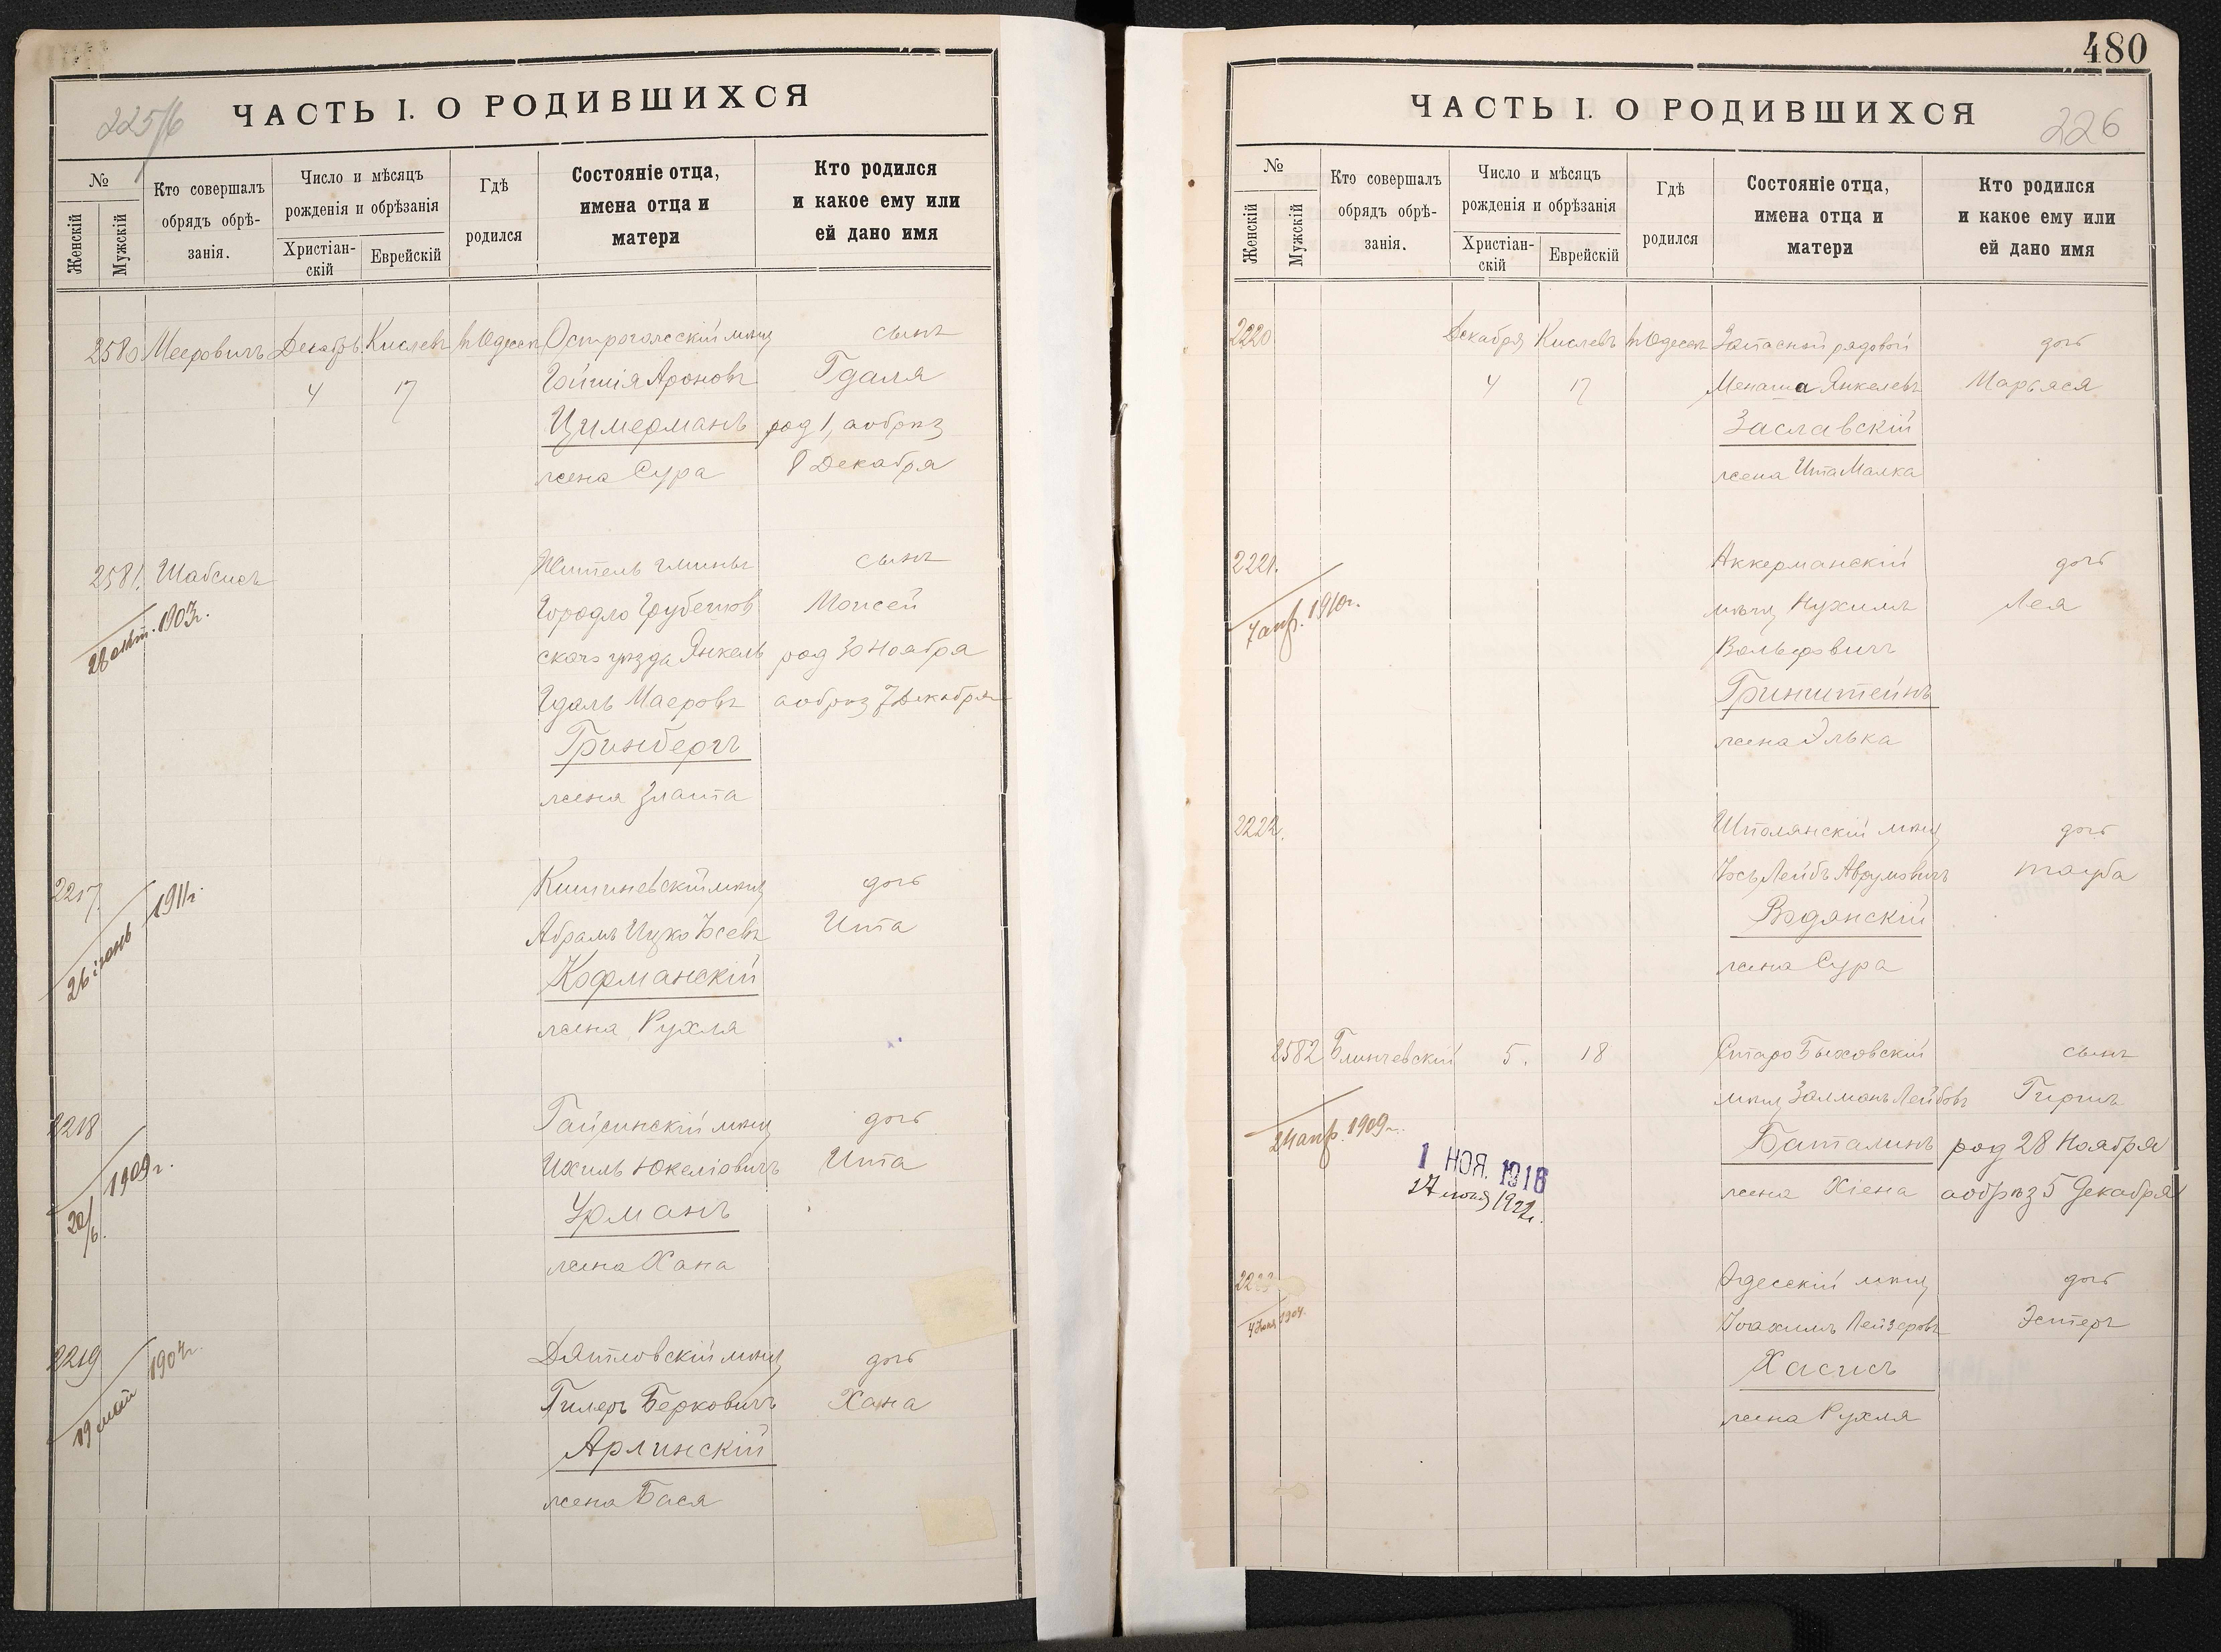 225/6
ЧАСТЬ I. О РОДИВШИХСЯ
№
Женскій
Мужскій
Кто совершалъ обрядъ обрѣ-занія.
Число и мѣсяцъ рожденія и обрѣзанія
Христіан-скій
Еврейскій
Гдѣ родился
Состояніе отца, имена отца и матери
Кто родился и какое ему или ей дано имя
2580 Мееровичъ Декабрь Кислевъ въ Одессѣ Острогожскій мѣщ сынъ
4 17 Ароновъ Гдаля
Цимерманъ род 1, а обрѣз
жена Сура 8 Декабря
2581. Шабсисъ Житель гмины сынъ
28 окт. 1903г. Городло Грубешов Моисей
скаго уѣзда Янкель род 30 Ноября
Идаль Маеровъ а обрѣз 7 Декабря
Гринбергъ
жена Злата
2217. Кишиневскій мѣщ дочь
26 іюнь 1911г. Абрамъ Ицко Іосевъ Ита
Кофманскій
жена Рухля
2218 Гайсинскій мѣщ дочь
20/6. 1909г. Ихиль Юкеліовичъ Ита
Урманъ
жена Хана
2219 Дятловскій мѣщ дочь
19 май 1904г. Гилеръ Берковичъ Хана
Арлинскій
жена Бася
480
226
ЧАСТЬ I. О РОДИВШИХСЯ
№
Женскій
Мужскій
Кто совершалъ обрядъ обрѣ-занія.
Число и мѣсяцъ рожденія и обрѣзанія
Христіан-скій
Еврейскій
Гдѣ родился
Состояніе отца, имена отца и матери
Кто родился и какое ему или ей дано имя
2220 Декабря Кислевъ въ Одессѣ Запасной рядовой дочь
4 17 Менаша Янкелевъ Марьяся
Заславскій
жена Ита Малка
2221. Аккерманскій дочь
7 апр. 1910г. мѣщ Нухимъ Лея
Вольфовичъ
Гринштейнъ
жена Элька
2222. Шполянскій мѣщ дочь
Іось Лейбъ Аврумовичъ Тауба
Водянскій
жена Сура
2582 Блинчевскій 5. 18 Старо Быховскій сынъ
мѣщ Залманъ Лейбовъ Гиршъ
24 апр. 1909г. Баталинъ род 28 Ноября
1 НОЯ. 1916 жена Хіена а обрѣз 5 Декабря
1922г.
Одесскій мѣщ дочь
1904. Іоахимъ Лейзеровъ Эстеръ
Хасисъ
жена Рухля